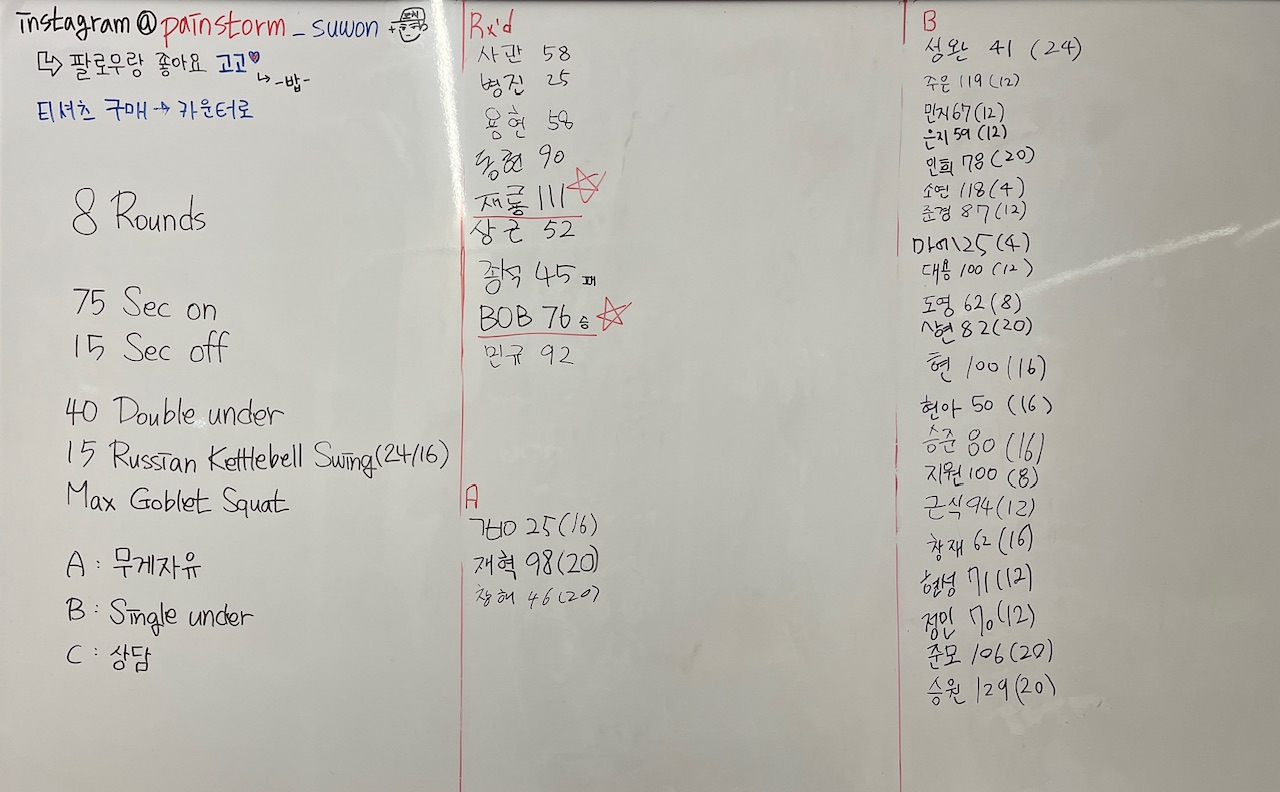 instagram@painstorm_suwon
팔로우랑 좋아요 고고
-밥-
티셔츠 구매 → 카운터로
8 Rounds
75 Sec on
15 Sec off
40 Double under
15 Russian Kettlebell Swing(24/16)
Max Goblet Squat
A : 무게자유
B : Single under
C : 상담
Rx'd
사관 58
병진 25
용현 58
동현 90
재룡 111
상근 52
종석 45 패
BOB 76 승
민규 92
A
25(16)
재혁 98(20)
창혜 46(20)
B
성완 41 (24)
주은 119(12)
민지 67(12)
은지 59 (12)
인희 78(20)
소연 118(4)
준경 87(12)
125(4)
대용 100 (12)
도영 62(8)
상현 82(20)
현 100(16)
현아 50 (16)
승준 80(16)
지원 100 (8)
근식 94(12)
창재 62(16)
현성 71(12)
정민 70(12)
준모 106(20)
승원 129(20)